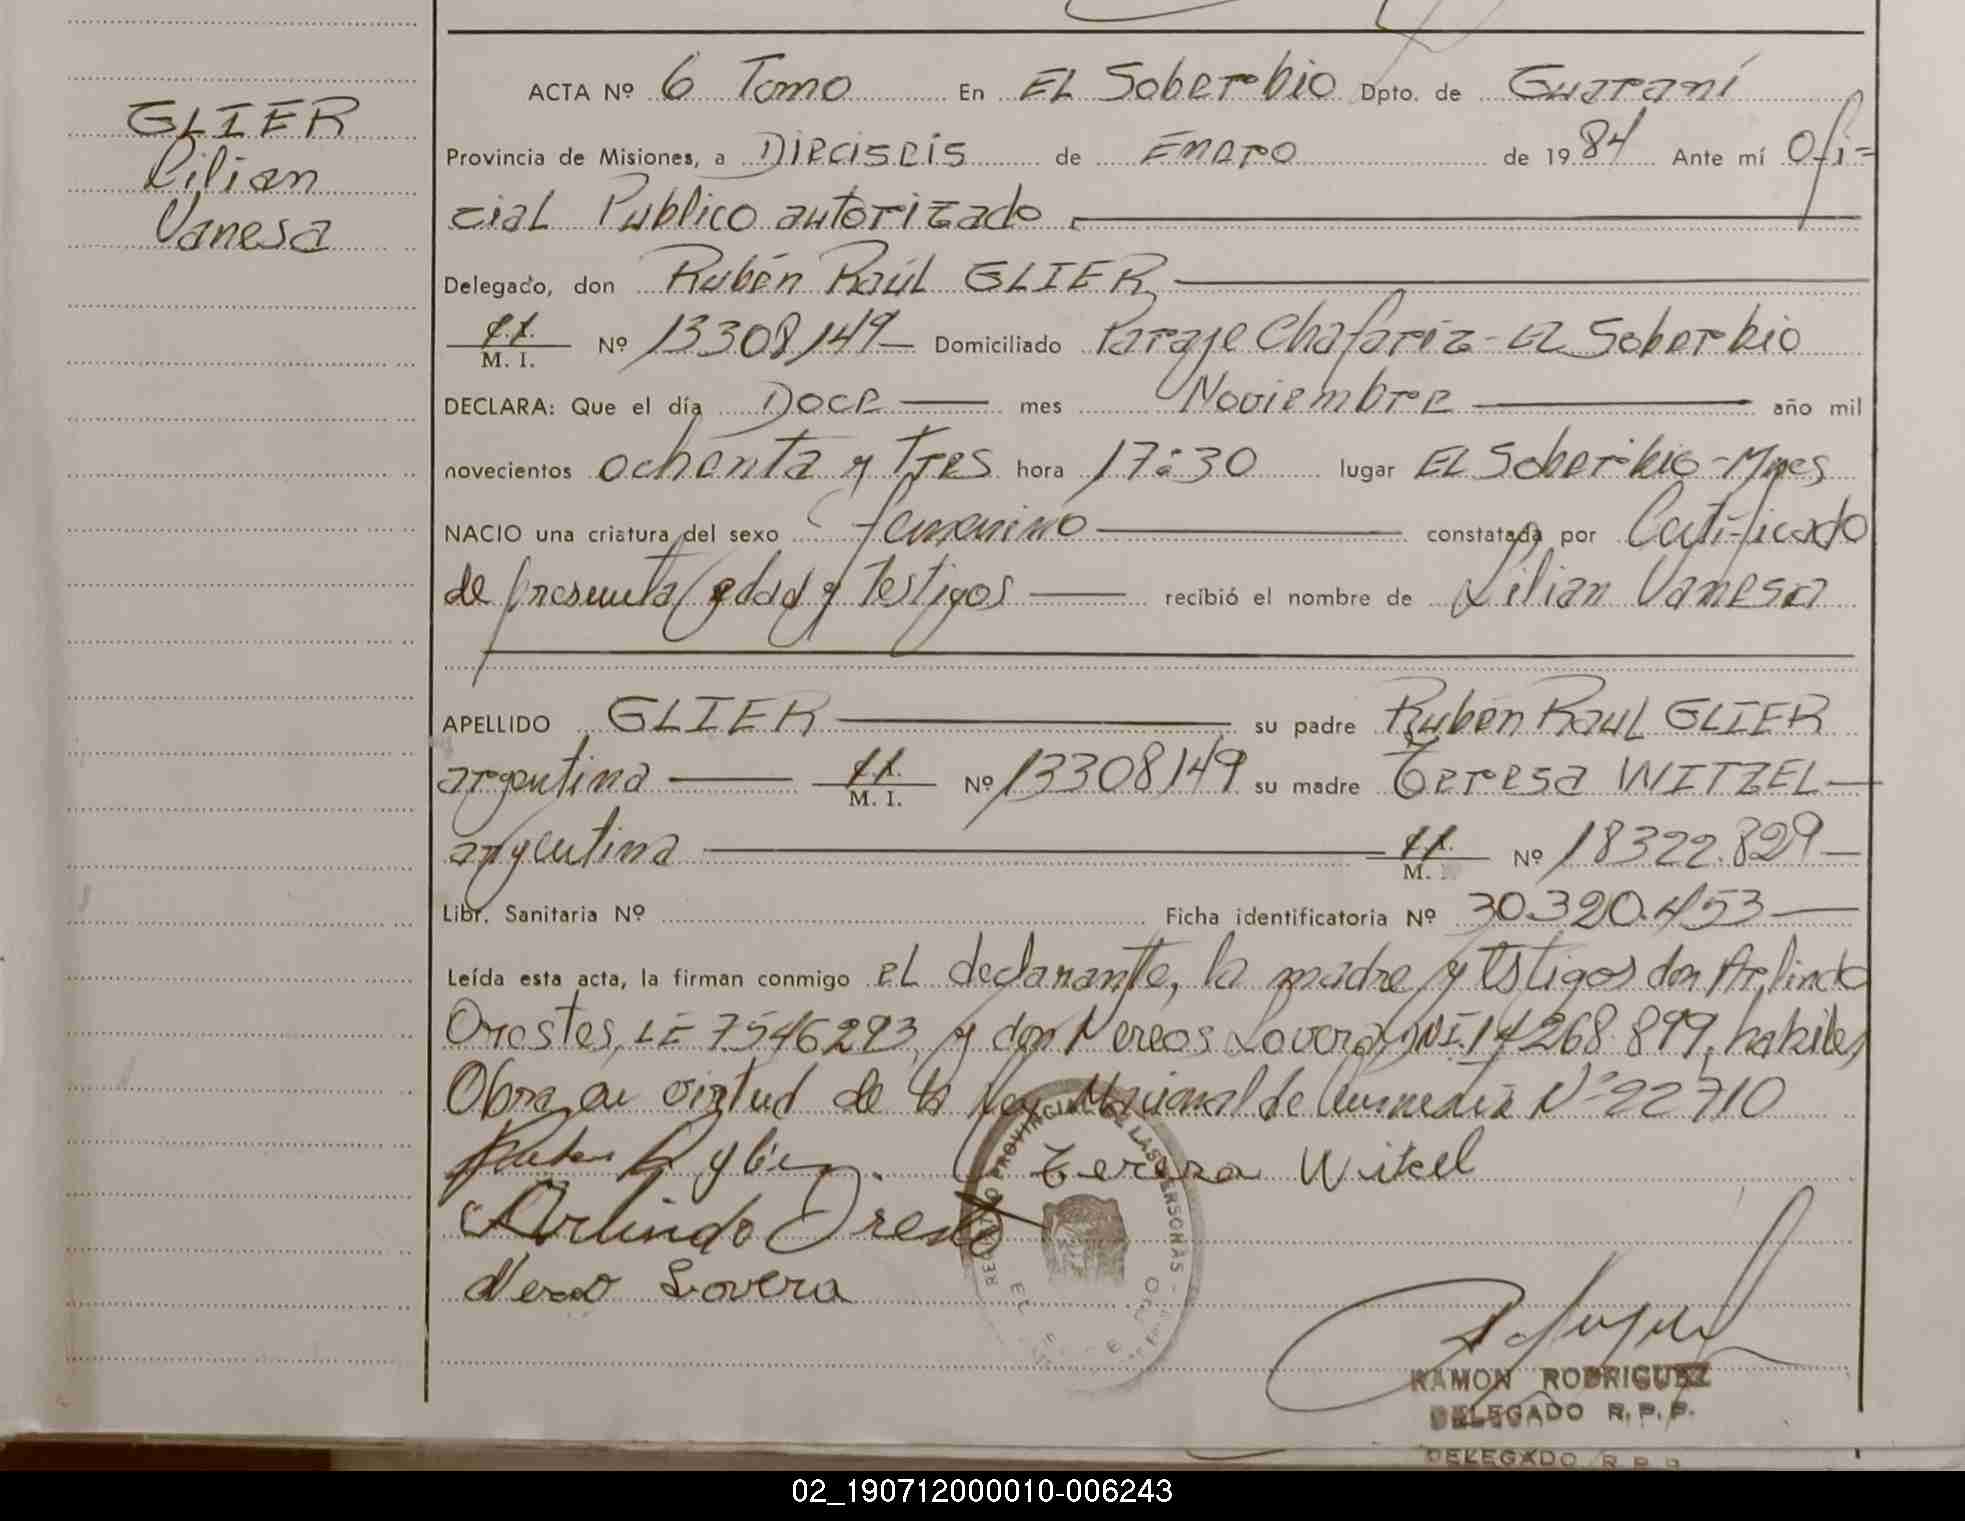 GLIER
Lilian
Vanesa
ACTA Nº 6 Tomo En EL Soberbio Dpto. de Guaraní
Provincia de Misiones, a Dieciseis de Enero de 1984 Ante mí Ofi=
cial Publico autorizado
Delegado, don Rubén Raúl GLIER
M. I. Nº 13308149 Domiciliado Paraje Chafariz - EL Soberbio
DECLARA: Que el día Doce mes Noviembre año mil
novecientos ochenta y Tres hora 17:30 lugar EL Soberbio - Mnes
NACIO una criatura del sexo femenino constatada por Certificado
de presunta edad y Testigos recibió el nombre de Lilian Vanesa
APELLIDO GLIER su padre Rubén Raul GLIER
argentina M. I. Nº 13308149 su madre Teresa WITZEL
argentina M. Nº 18322.829
Libr. Sanitaria Nº Ficha identificatoria Nº 30.320.453
Leída esta acta, la firman conmigo el declarante, la madre y testigos don Arlindo
Orestes, LE 7.546293, y don Nereos Lovera, DNI. 14268.899, habiles
Obra en virtud de la Ley Nacional de Amnistia Nº 22710
Teresa Witzel
Arlindo Oreste
Nereo Lovera
REGISTRO PROVINCIAL DE LAS PERSONAS
RAMON RODRIGUEZ
DELEGADO R.P.P.
DELEGADO R.P.P.
02_190712000010-006243